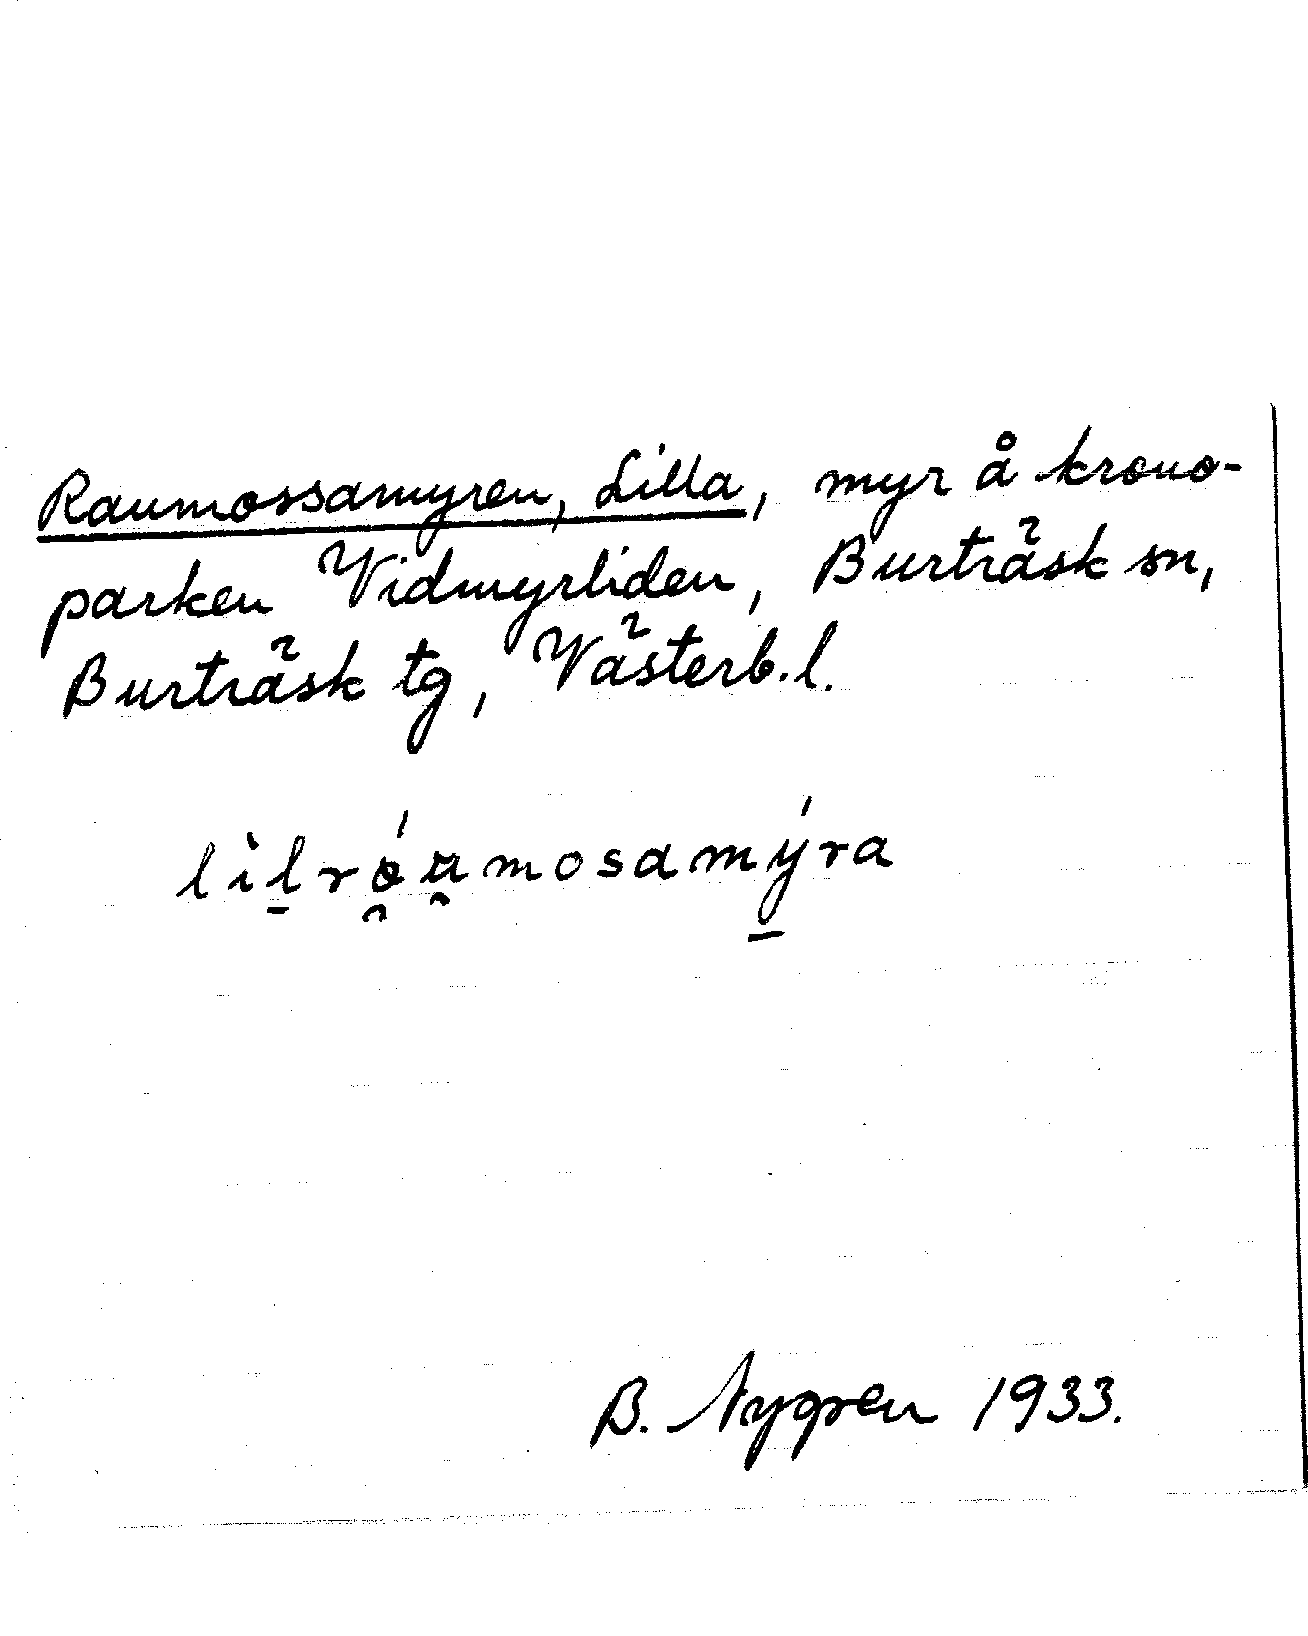 Raumossamyren, Lilla, myr å krono-
parken Vidmyrliden, Burträsk sn,
Burträsk tg, Västerb.l.
lìl̠ró̯u̯mosamý̠ra
B. Nygren 1933.